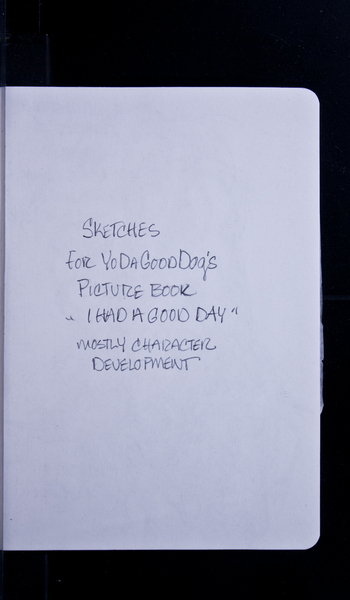 SKETCHES
FOR YODAGOODDOG'S
PICTURE BOOK
"I HAD A GOOD DAY"
MOSTLY CHARACTER
DEVELOPMENT